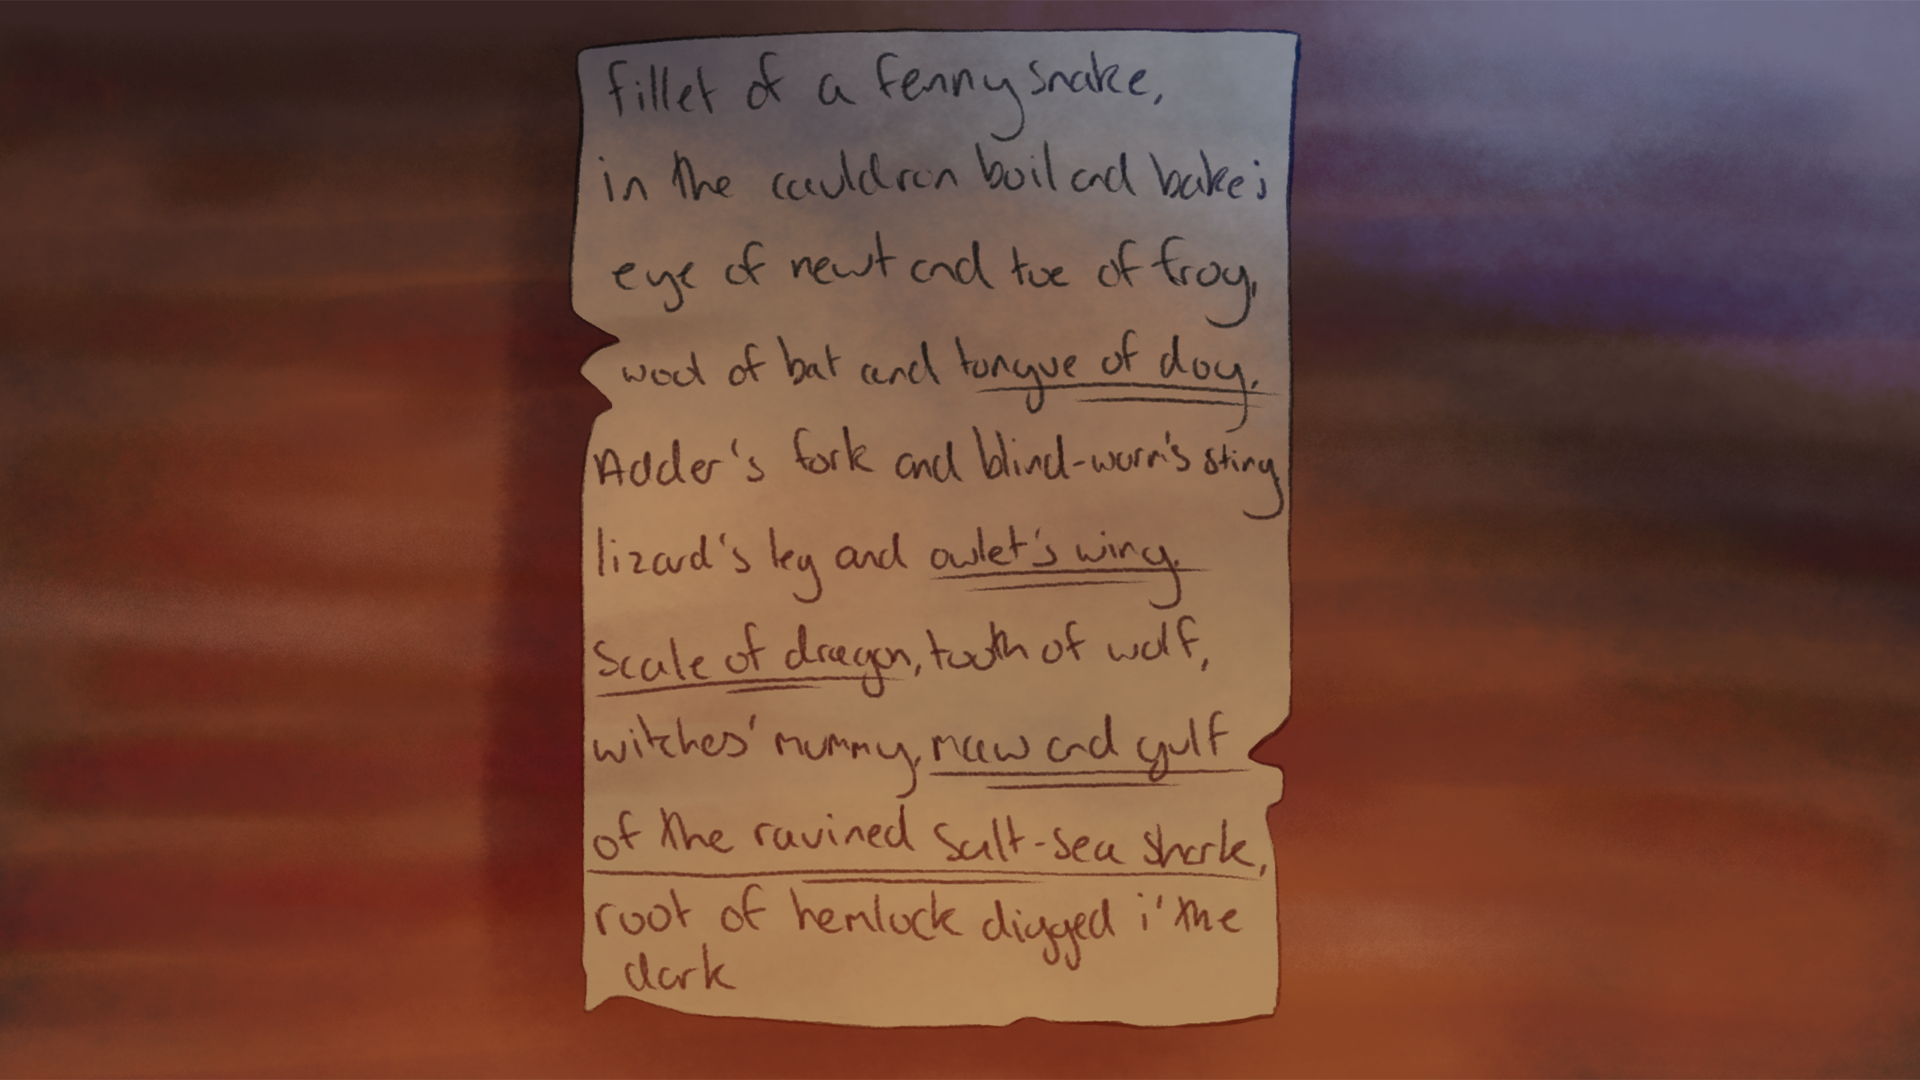 fillet of a fenny snake,
in the cauldron boil and bake;
eye of newt and toe of frog,
wool of bat and tongue of dog,
Adder's fork and blind-worm's sting
lizard's leg and owlet's wing.
Scale of dragon, tooth of wolf,
witches' mummy, maw and gulf
of the ravined salt-sea shark,
root of hemlock digged i' the
dark